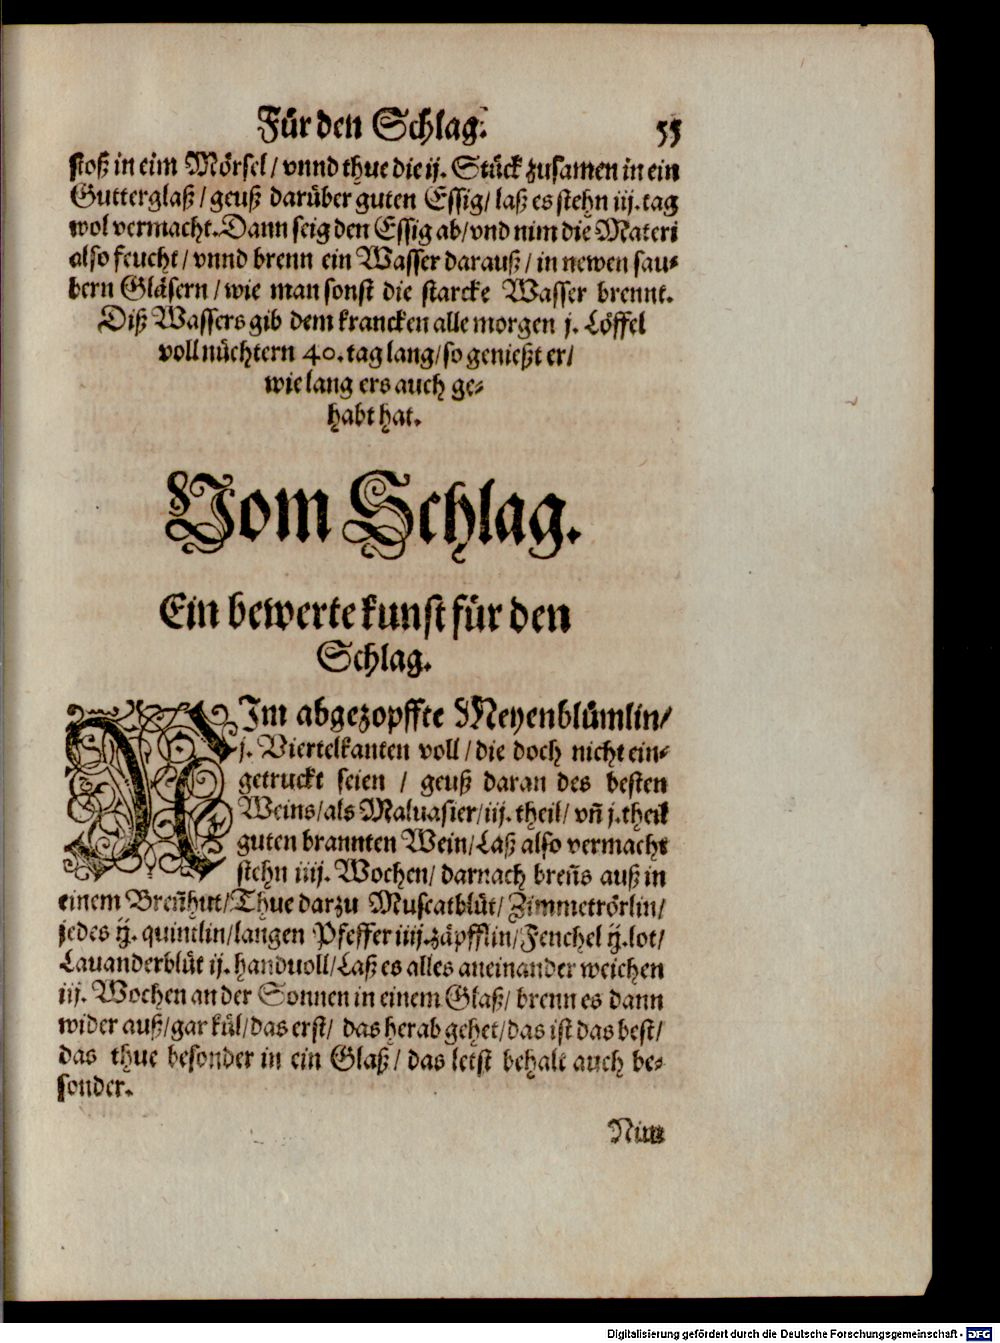 Für den Schlag. 55
stoß in eim Mörsel / vnnd thue die ij. Stück zusamen in ein
Gutterglaß / geuß darüber guten Essig / laß es stehn iij. tag
wol vermacht. Dann seig den Essig ab / vnd nim die Materi
also feucht / vnnd brenn ein Wasser darauß / in newen sau⸗
bern Gläsern / wie man sonst die starcke Wasser brennt.
Diß Wassers gib dem krancken alle morgen j. Löffel
voll nüchtern 40. tag lang / so genießt er /
wie lang ers auch ge⸗
habt hat.
Vom Schlag.
Ein bewerte kunst für den
Schlag.
NIm abgezopffte Meyenblümlin /
j. Viertelkanten voll / die doch nicht ein⸗
getruckt seien / geuß daran des besten
Weins / als Maluasier / iij. theil / vñ j. theil
guten brannten Wein / Laß also vermacht
stehn iiij. Wochen / darnach breñs auß in
einem Breñhut / Thue darzu Muscatblüt / Zimmetrörlin /
jedes ij. quintlin / langen Pfeffer iiij. zäpfflin / Fenchel ij. lot /
Lauanderblüt ij. handuoll / Laß es alles aneinander weichen
iij. Wochen an der Sonnen in einem Glaß / brenn es dann
wider auß / gar kül / das erst / das herab gehet / das ist das best /
das thue besonder in ein Glaß / das letst behalt auch be⸗
sonder.
Nim
Digitalisierung gefördert durch die Deutsche Forschungsgemeinschaft - DFG